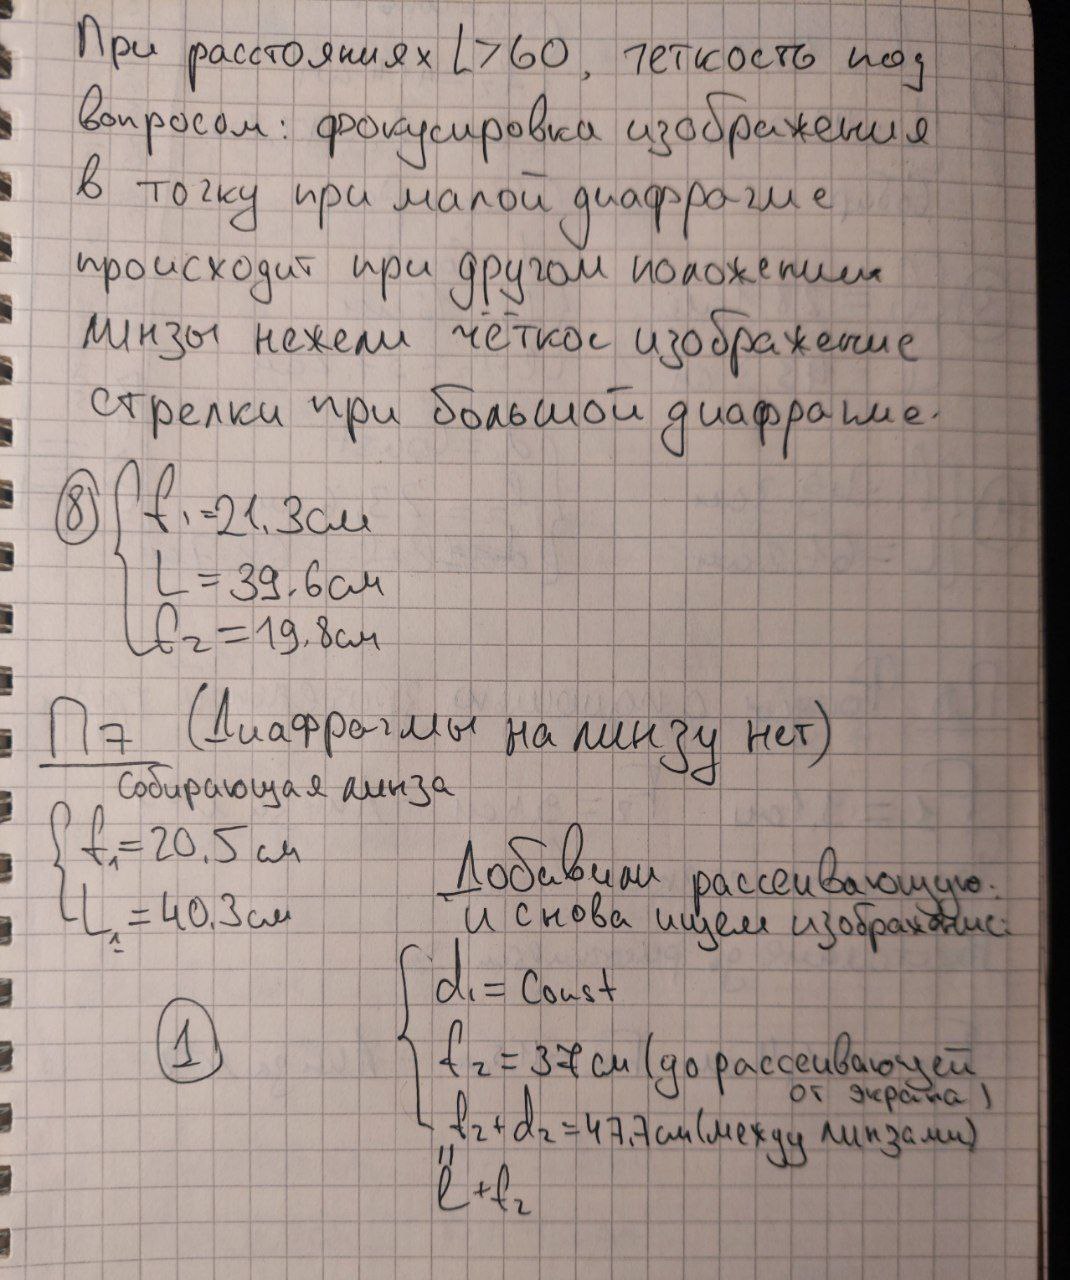 При расстояниях L>60, четкость под
вопросом: фокусировка изображения
в точку при малой диафрагме
происходит при другом положении
линзы нежели чёткое изображение
стрелки при большой диафрагме.
⑧ { f₁=21.3см
L=39.6см
f₂=19.8см
П7 (Диафрагмы на линзу нет)
собирающая линза
{ f₁=20.5см
L₁=40.3см
Добавили рассеивающую.
и снова ищем изображение:
① { d₁=Const
f₂=37см (до рассеивающей
от экрана)
f₂+d₂=47.7см (между линзами)
"
l+f₂